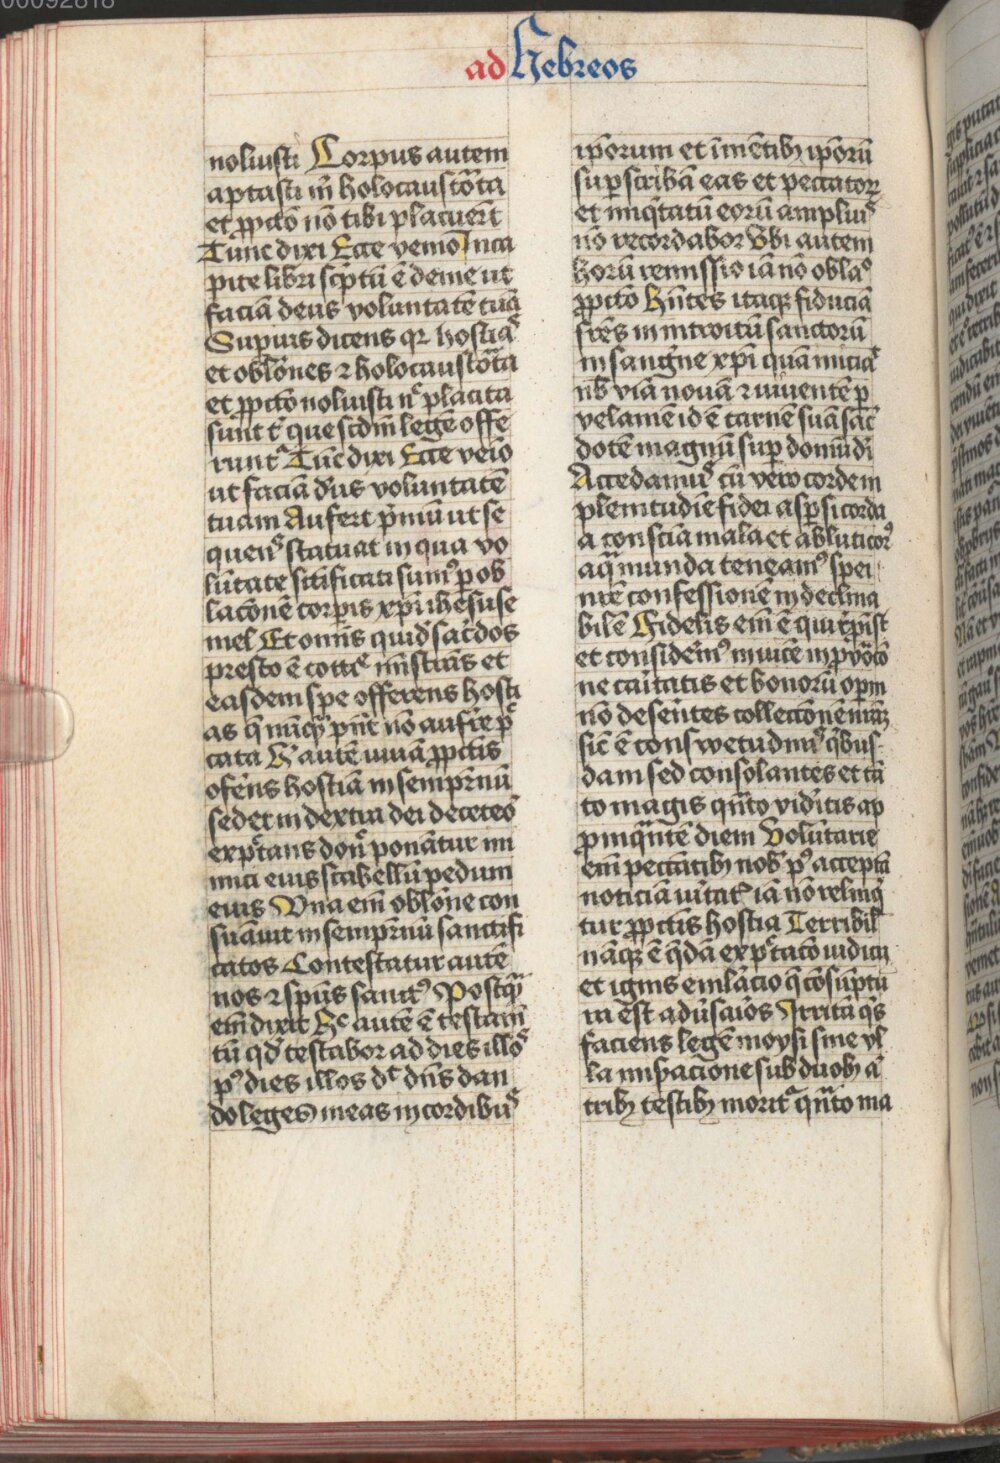 00092818
ad Hebreos
noluisti Corpus autem
aptasti m̄ holocaustōta
et ꝓpctō nō tibi placuer̄t
Tunc dixi Ecce venio In ca
pite libri sc̄ptū ē de me ut
faciā deus voluntatē tuā
Supius dicens qꝛ hostiaˢ
et oblōnes ⁊ holocaustōta
et ꝓpctō noluisti nͨ placita
sunt tͥ que scdm̄ legē offe
runtᷣ Tūc dixi Ecce veīo
ut faciā dus voluntatē
tuam Aufert p̄mū ut se
quenˢ statuat in qua vo
lūtate sc̄ificati sumꝰ ꝑ ob
lacōnē corpis xp̄i ihesu se
mel Et omīs quidē sac̄dos
presto ē cottͥe mīstrās et
easdem spe offerens hosti
as q̄ nūcꝙ pn̄t nō aufr̄e pͨ
cata hͥ autē unā ꝓ pctīs
ofēns hostiā in semp̄nū
sedet in dextra dei de ceteō
expͨtans donͨ ponātur ini
mici eius scabellū pedum
eius Vna em̄ oblōne con
sūauit in semp̄nū sanctifi
catos Contestatur autē
nos ⁊ sp̄us sanctꝰ Postqᷓ
em̄ dixit Hͨ autē ē testam̄
tū qd̄ testabor ad dies illoˢ
pꝰ dies illos dͨt dn̄s dan
do leges meas in cordibuˢ
ip̄orum et ī mētibꝫ ip̄orū
sup̄scribā eas et peccatorꝝ
et iniq̄tatū eorū ampliuˢ
nō recordabor Vbi autem
horū remissio iā nō oblaᵒ
ꝓ pctō Hn̄tes itaqꝫ fiduciā
fr̄es in introitū sanctorū
in sangͥne xp̄i quā iniciaͭ
nob̄ viā nouā ⁊ viuentē ꝑ
velamē id ē carnē suā sac̄
dotē magnū sup domū dī
Accedamuˢ cū vero corde in
plenitudīe fidei aspsi corda
a conscīa mala et abluti corꝰ
aqᷓ munda teneamꝰ spei
nr̄e confessionē indeclina
bilē Fidelis em̄ ē qui rep̄ist
et considemꝰ inuicē in ꝓvocō
ne caritatis et bonorū opm̄
nō deserētes collectōnē nr̄aꝫ
sic̄ ē conswetudinīˢ qͥbus
dam sed consolantes et tā
to magis qn̄to vidītis ap
pinqᷓntē diem Volūtarie
em̄ peccātibꝫ nob̄ pꝰ acceptā
noticiā uītatͥˢ iā nō relinqͥ
tur ꝓ pctīs hostia Terribilͥ
nāqꝫ ē qͣdā expͨtacō iudicii
et ignis emlācio q̄ cōsūptu
ra est aduˢarios Irritā qͥs
faciens legē moysi sine vl
la misacione sub duobꝫ aͭ
tribꝫ testibꝫ moritᷣ qᷓnto ma